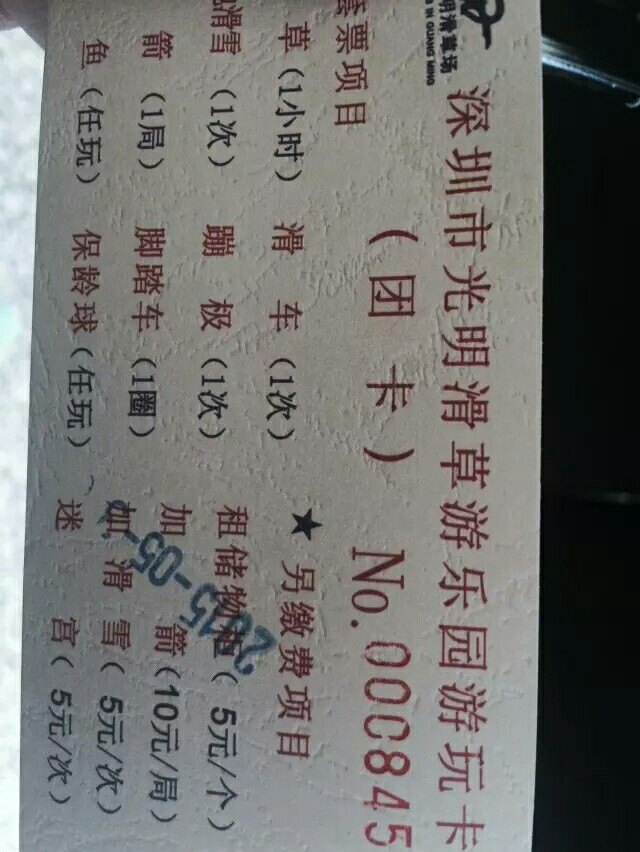 明滑草场
GUANG MING
深圳市光明滑草游乐园游玩卡
(团卡) No.000845
票项目
草(1小时) 滑车(1次)
滑雪(1次) 蹦极(1次)
箭(1局) 脚踏车(1圈)
鱼(任玩) 保龄球(任玩)
★另缴费项目
租储物柜(5元/个)
加箭(10元/局)
加滑雪(5元/次)
迷宫(5元/次)
2015-05-